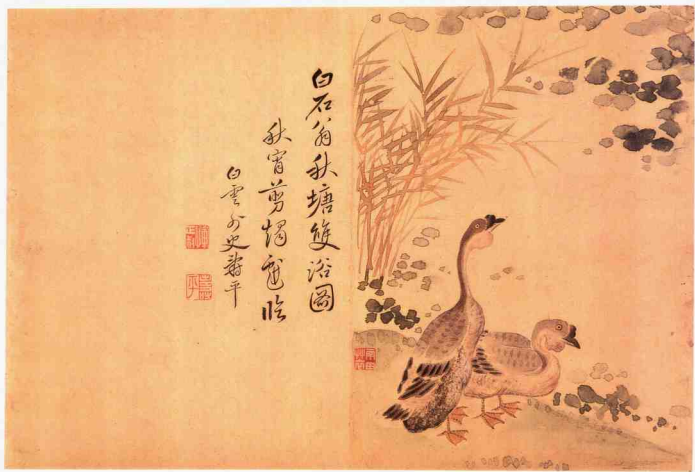 白石翁秋塘雙浴圖
秋宵剪燭戲臨
白雲外史壽平